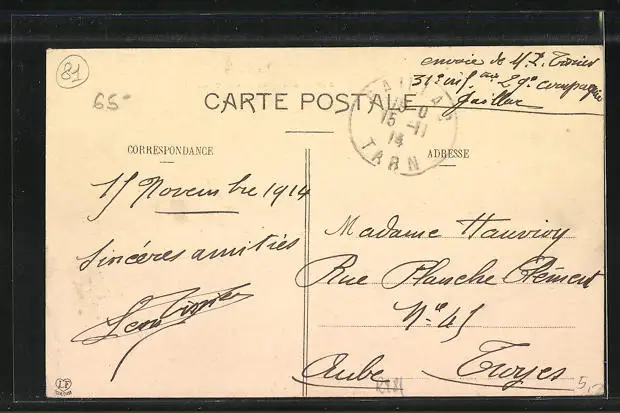 81
65-
envoie de
31e inf. 29e compagnie
Gaillac
CARTE POSTALE
GAILLAC
15-11
14
TARN
CORRESPONDANCE
ADRESSE
15 Novembre 1914
Sincères amitiés
Léon
Madame
Rue Planche Clément
N° 45
Aube Troyes